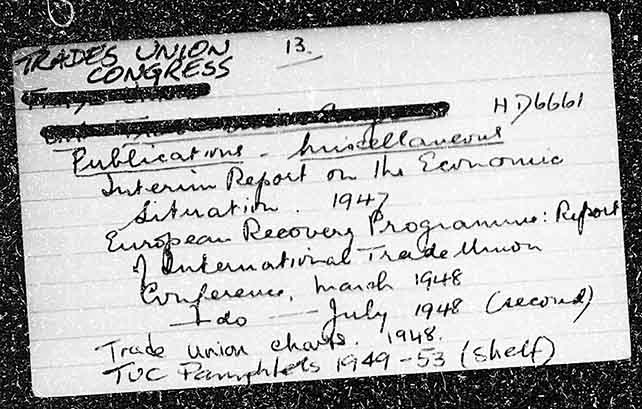 TRADES UNION 13.
CONGRESS
HD6661
Publications - Miscellaneous
Interim Report on the Economic
Situation. 1947
European Recovery Programme: Report
of International Trade Union
Conference, March 1948
— do — July 1948 (second)
Trade Union charts. 1948.
TUC Pamphlets 1949-53 (shelf)